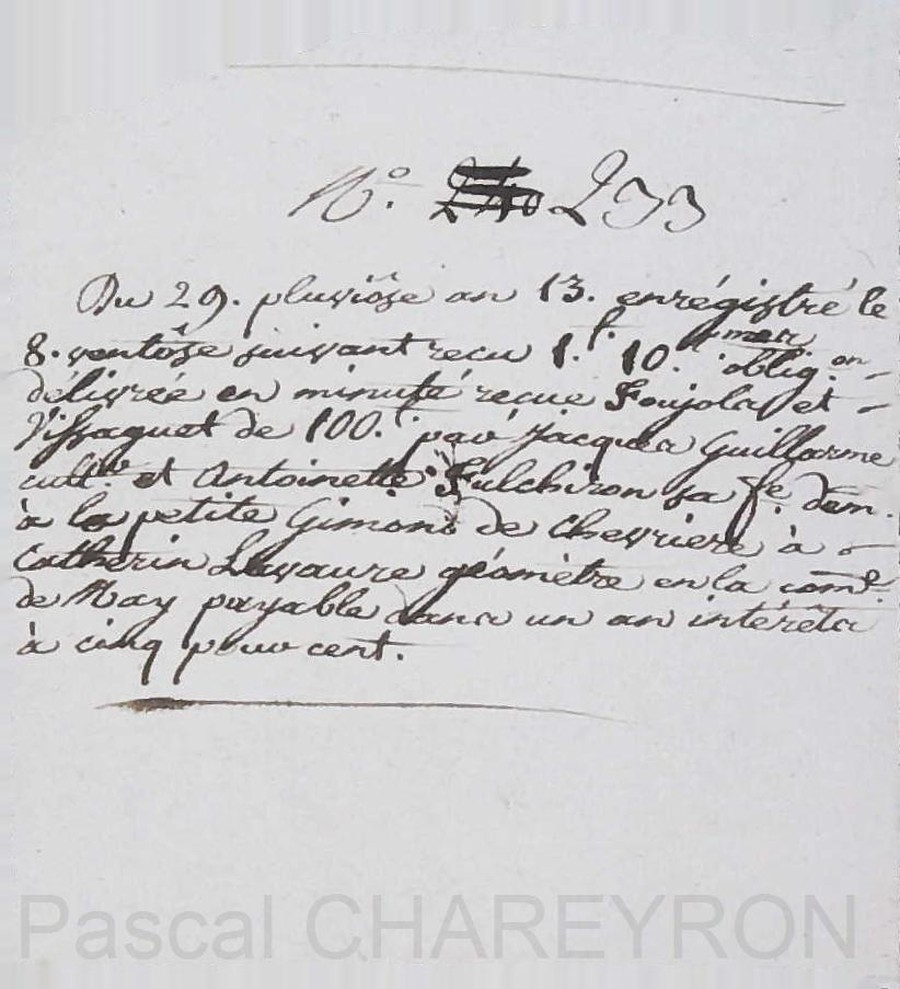 N.° 233
Du 29. pluviôse an 13. enrégistré le
8. ventôse suivant reçu 1.f 10.
délivrée en minute reçue Foujols et
Vissaguet de 100.f par Jacques Guillarme
cult.r et Antoinette Fulchiron sa fe. dem.
à la petite Gimond de Chevriere à
Catherin Lavaure géomètre en la com.e
de May payable dans un an intérêts
à cinq pour cent.
Pascal CHAREYRON